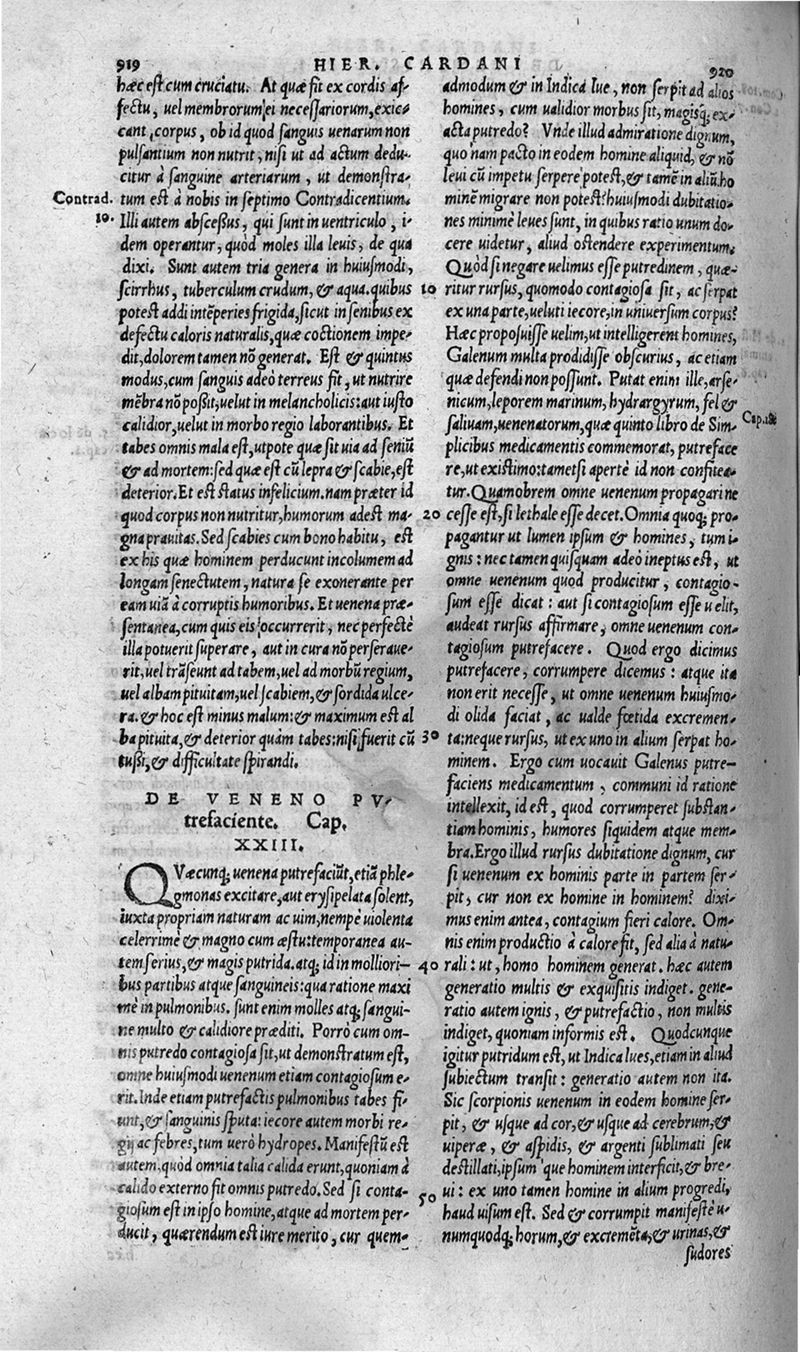 919
HIER. CARDANI
920
hæc est cum cruciatu. At quæ fit ex cordis af-
fectu, uel membrorum ei necessariorum, exic-
cant corpus, ob id quod sanguis uenarum non
pulsantium non nutrit, nisi ut ad actum dedu-
citur à sanguine arteriarum, ut demonstra-
Contrad.
tum est à nobis in septimo Contradicentium.
10.
Illi autem abscessus, qui sunt in uentriculo, i-
dem operantur, quòd moles illa leuis, de qua
dixi. Sunt autem tria genera in huiusmodi,
scirrhus, tuberculum crudum, & aqua. quibus
potest addi intēperies frigida, sicut in senibus ex
defectu caloris naturalis, quæ coctionem impe-
dit, dolorem tamen nō generat. Est & quintus
modus, cum sanguis adeò terreus fit, ut nutrire
mēbra nō possit, uelut in melancholicis: aut iusto
calidior, uelut in morbo regio laborantibus. Et
tabes omnis mala est, utpote quæ sit uia ad seniū
& ad mortem: sed quæ est cū lepra & scabie, est
deterior. Et est status infelicium. nam præter id
quod corpus non nutritur, humorum adest ma-
gna prauitas. Sed scabies cum bono habitu, est
ex his quæ hominem perducunt incolumem ad
longam senectutem, natura se exonerante per
eam uiā à corruptis humoribus. Et uenena præ-
sentanea, cum quis eis occurrerit, nec perfectè
illa potuerit superare, aut in cura nō perseraue-
rit, uel trāseunt ad tabem, uel ad morbū regium,
uel albam pituitam, uel scabiem, & sordida ulce-
ra. & hoc est minus malum: & maximum est al
ba pituita, & deterior quàm tabes: nisi fuerit cū
tussi, & difficultate spirandi.
DE VENENO PV-
trefaciente. Cap.
XXIII.
QVæcunq; uenena putrefaciūt, etiā phle-
gmonas excitare, aut erysipelata solent,
iuxta propriam naturam ac uim, nempè uiolenta
celerrimè & magno cum æstu: temporanea au-
tem serius, & magis putrida. atq; id in molliori-
bus partibus atque sanguineis: qua ratione maxi
mè in pulmonibus. sunt enim molles atq; sangui-
ne multo & calidiore præditi. Porrò cum om-
nis putredo contagiosa sit, ut demonstratum est,
omne huiusmodi uenenum etiam contagiosum e-
rit. Inde etiam putrefactis pulmonibus tabes fi-
unt, & sanguinis sputa: iecore autem morbi re-
gij ac febres, tum uerò hydropes. Manifestū est
autem, quòd omnia talia calida erunt, quoniam à
calido externo fit omnis putredo. Sed si conta-
giosum est in ipso homine, atque ad mortem per-
ducit, quærendum est iure merito, cur quem-
admodum & in Indica lue, non serpit ad alios
homines, cum ualidior morbus sit, magisq; ex-
acta putredo? Vnde illud admiratione dignum,
quo nam pacto in eodem homine aliquid, & nō
leui cū impetu serpere potest, & tamē in aliū ho
minē migrare non potest: huiusmodi dubitatio-
nes minimè leues sunt, in quibus ratio unum do-
cere uidetur, aliud ostendere experimentum.
Quòd si negare uelimus esse putredinem, quæ-
10 ritur rursus, quomodo contagiosa sit, ac serpat
ex una parte, ueluti iecore, in uniuersum corpus?
Hæc proposuisse uelim, ut intelligerent homines,
Galenum multa prodidisse obscurius, ac etiam
quæ defendi non possunt. Putat enim ille, arse-
nicum, leporem marinum, hydrargyrum, fel &
saliuam, uenenatorum, quæ quinto libro de Sim-
plicibus medicamentis commemorat, putreface
re, ut existimo: tametsi apertè id non confitea-
tur. Quamobrem omne uenenum propagari ne
20 cesse est, si lethale esse decet. Omnia quoq; pro-
pagantur ut lumen ipsum & homines, tum i-
gnis: nec tamen quisquam adeò ineptus est, ut
omne uenenum quod producitur, contagio-
sum esse dicat: aut si contagiosum esse uelit,
audeat rursus affirmare, omne uenenum con-
tagiosum putrefacere. Quod ergo dicimus
putrefacere, corrumpere dicemus: atque ita
non erit necesse, ut omne uenenum huiusmo-
di olida faciat, ac ualde fœtida excremen-
30 ta: neque rursus, ut ex uno in alium serpat ho-
minem. Ergo cum uocauit Galenus putre-
faciens medicamentum, communi id ratione
intellexit, id est, quod corrumperet substan-
tiam hominis, humores siquidem atque mem-
bra. Ergo illud rursus dubitatione dignum, cur
si uenenum ex hominis parte in partem ser-
pit, cur non ex homine in hominem? dixi-
mus enim antea, contagium fieri calore. Om-
nis enim productio à calore fit, sed alia à natu-
40 rali: ut, homo hominem generat. hæc autem
generatio multis & exquisitis indiget. gene-
ratio autem ignis, & putrefactio, non multis
indiget, quoniam informis est. Quodcunque
igitur putridum est, ut Indica lues, etiam in aliud
subiectum transit: generatio autem non ita.
Sic scorpionis uenenum in eodem homine ser-
pit, & usque ad cor, & usque ad cerebrum, &
uiperæ, & aspidis, & argenti sublimati seu
destillati, ipsum que hominem interficit, & bre-
50 ui: ex uno tamen homine in alium progredi,
haud uisum est. Sed & corrumpit manifestè u-
numquodq; horum, & excremēta, & urinas, &
sudores